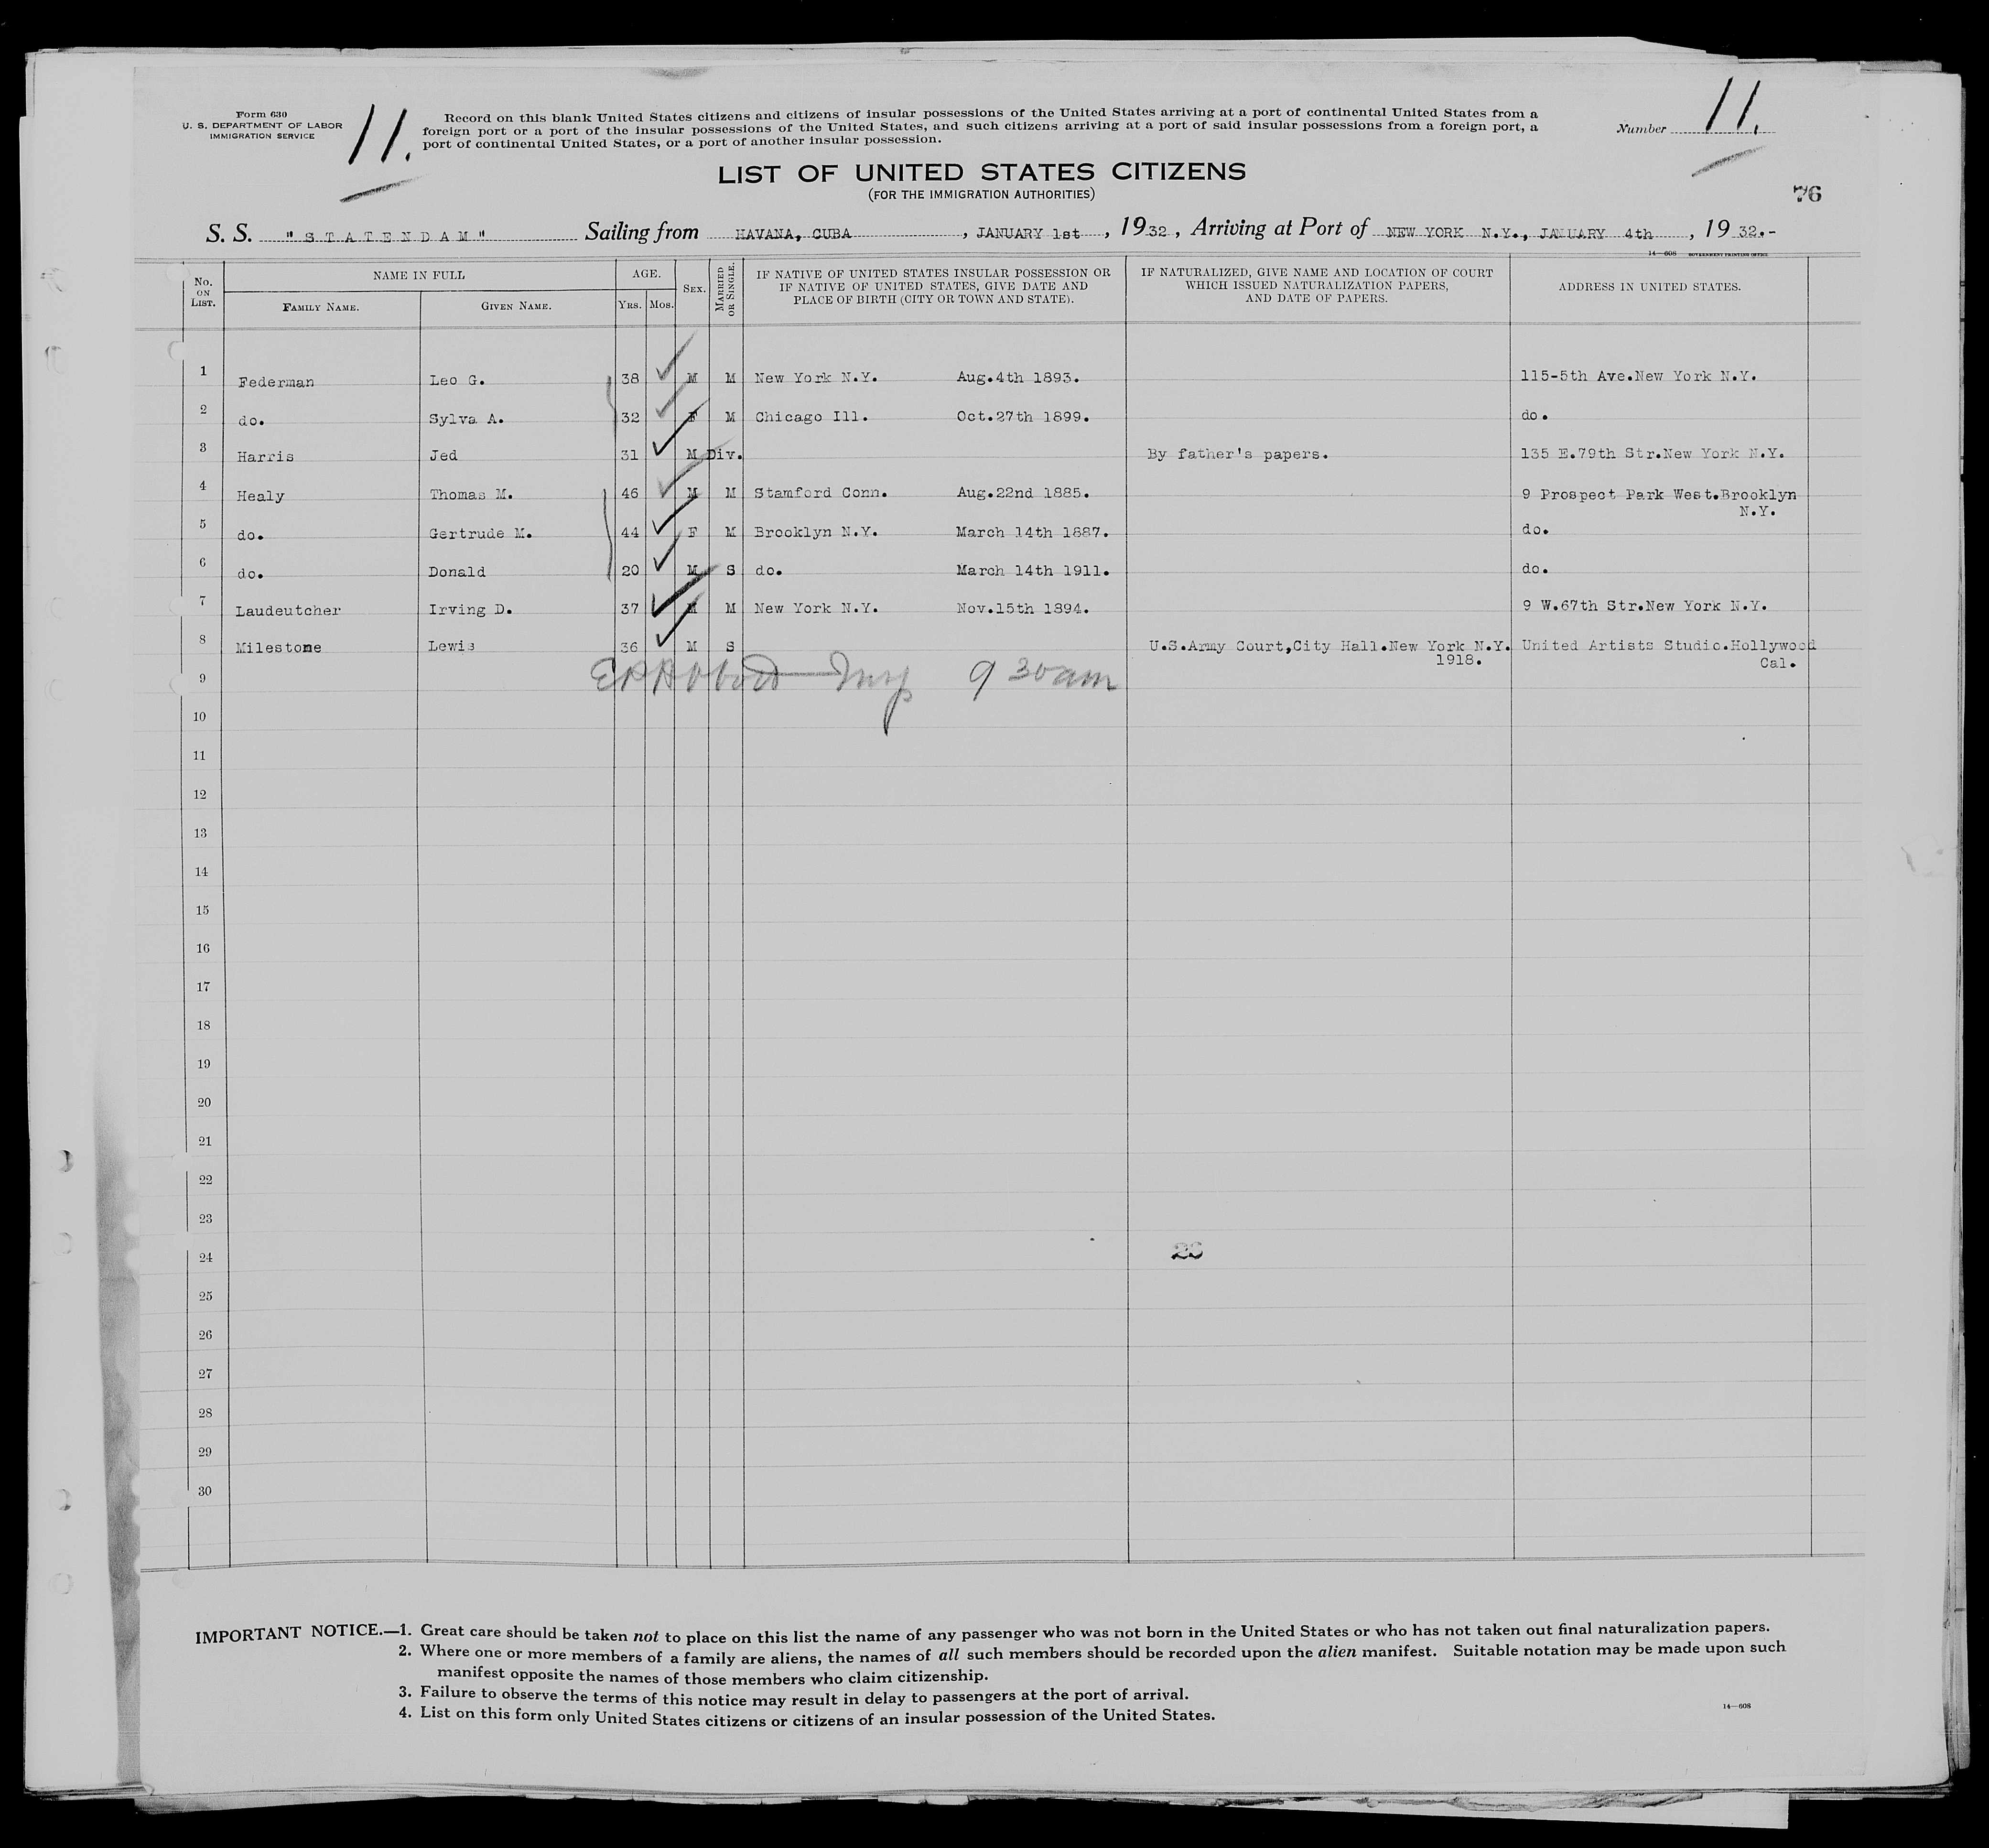 Form 630
U. S. DEPARTMENT OF LABOR
IMMIGRATION SERVICE
11.
Record on this blank United States citizens and citizens of insular possessions of the United States arriving at a port of continental United States from a
foreign port or a port of the insular possessions of the United States, and such citizens arriving at a port of said insular possessions from a foreign port, a
port of continental United States, or a port of another insular possession.
Number 11.
LIST OF UNITED STATES CITIZENS
(FOR THE IMMIGRATION AUTHORITIES)
76
S. S. "STATENDAM" Sailing from HAVANA, CUBA, JANUARY 1st, 1932, Arriving at Port of NEW YORK N.Y., JANUARY 4th, 1932.-
14—608 GOVERNMENT PRINTING OFFICE
No. ON LIST. NAME IN FULL FAMILY NAME. GIVEN NAME. AGE. YRS. MOS. SEX. MARRIED OR SINGLE. IF NATIVE OF UNITED STATES INSULAR POSSESSION OR IF NATIVE OF UNITED STATES, GIVE DATE AND PLACE OF BIRTH (CITY OR TOWN AND STATE). IF NATURALIZED, GIVE NAME AND LOCATION OF COURT WHICH ISSUED NATURALIZATION PAPERS, AND DATE OF PAPERS. ADDRESS IN UNITED STATES.
1 Federman Leo G. 38 M M New York N.Y. Aug.4th 1893. 115-5th Ave.New York N.Y.
2 do. Sylva A. 32 F M Chicago Ill. Oct.27th 1899. do.
3 Harris Jed 31 M Div. By father's papers. 135 E.79th Str.New York N.Y.
4 Healy Thomas M. 46 M M Stamford Conn. Aug.22nd 1885. 9 Prospect Park West.Brooklyn
N.Y.
5 do. Gertrude M. 44 F M Brooklyn N.Y. March 14th 1887. do.
6 do. Donald 20 M S do. March 14th 1911. do.
7 Laudeutcher Irving D. 37 M M New York N.Y. Nov.15th 1894. 9 W.67th Str.New York N.Y.
8 Milestone Lewis 36 M S U.S.Army Court,City Hall.New York N.Y. United Artists Studio.Hollywood
1918. Cal.
9 Insp 9 30 am
10
11
12
13
14
15
16
17
18
19
20
21
22
23
24
25
26
27
28
29
30
IMPORTANT NOTICE.—1. Great care should be taken not to place on this list the name of any passenger who was not born in the United States or who has not taken out final naturalization papers.
2. Where one or more members of a family are aliens, the names of all such members should be recorded upon the alien manifest. Suitable notation may be made upon such
manifest opposite the names of those members who claim citizenship.
3. Failure to observe the terms of this notice may result in delay to passengers at the port of arrival.
4. List on this form only United States citizens or citizens of an insular possession of the United States.
14—608